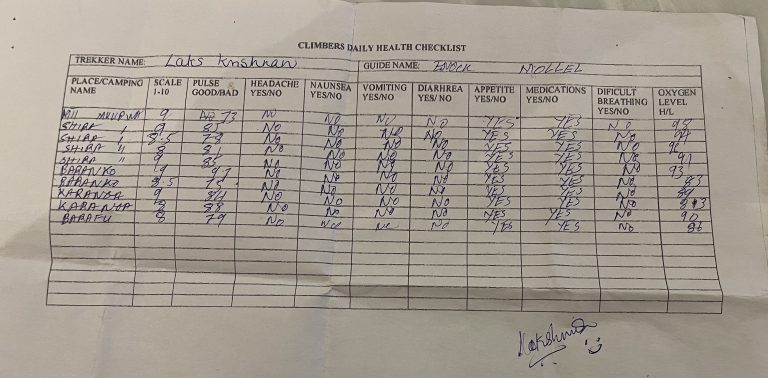 CLIMBERS DAILY HEALTH CHECKLIST
TREKKER NAME: Laks Krishnan GUIDE NAME: ENOCK MOLLEL
PLACE/CAMPING NAME SCALE 1-10 PULSE GOOD/BAD HEADACHE YES/NO NAUNSEA YES/NO VOMITING YES/NO DIARHREA YES/ NO APPETITE YES/NO MEDICATIONS YES/NO DIFICULT BREATHING YES/NO OXYGEN LEVEL H/L
9 73 NO NO NO NO YES YES NO
SHIRA " 9 85 NO NO NO NO YES YES NO 94
SHIRA " 8.5 78 NO NO NO YES YES NO
SHIRA " 8 81 NO NO NO NO YES YES NO 91
SHIRA " 9 85 NO NO NO NO YES YES NO 93
BARANKO 9 97 NO NO NO NO YES YES NO 83
BARANKO 8.5 NO NO NO NO YES YES NO
KARANGA 9 NO NO NO NO YES YES NO
KARANGA 8 88 NO NO NO NO YES YES NO 90
BARAFU 8 79 NO NO NO NO YES YES NO 86
Lakshmi